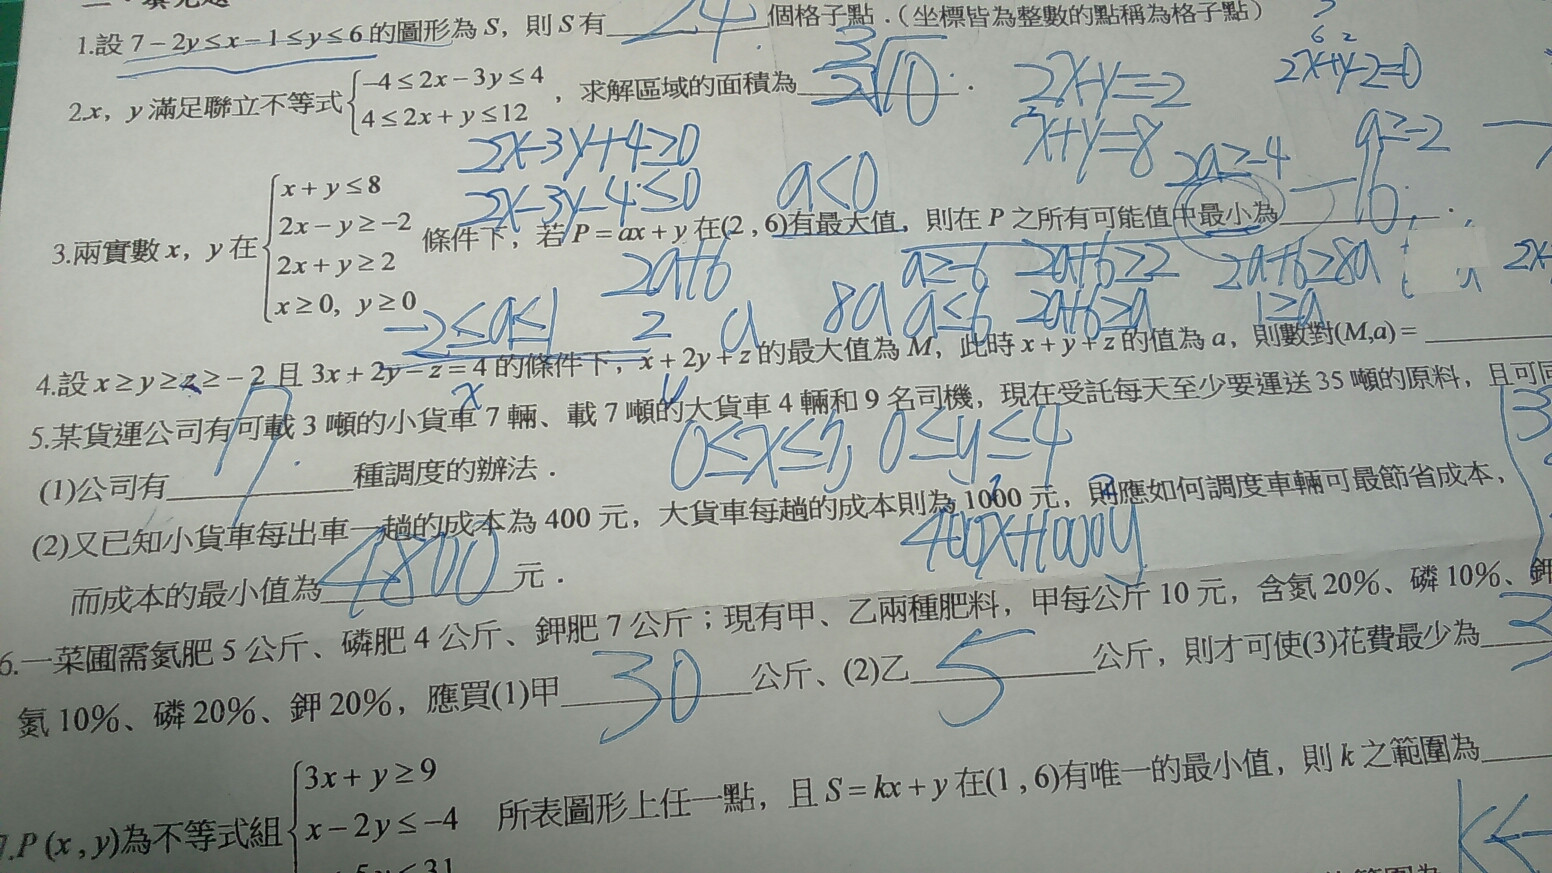 1.設 7－2y≤x－1≤y≤6 的圖形為 S，則 S 有 24 個格子點．（坐標皆為整數的點稱為格子點）
2.x，y 滿足聯立不等式 －4≤2x－3y≤4
4≤2x＋y≤12 ，求解區域的面積為
2x-3y+4≥0
2x-3y-4≤0
2x-y=-2
x+y=8
2x+y-2=0
a<0
2a≥-4
a≥-2
3.兩實數 x，y 在 x＋y≤8
2x－y≥－2
2x＋y≥2
x≥0，y≥0
條件下，若 P＝ax＋y 在(2，6)有最大值，則在 P 之所有可能值中最小為
2a+6
a≥-6 2a+6≥2 2a+6≥8a
-2≤a≤1 2 a 8a a≤6 2a+6≥a 1≥a
4.設 x≥y≥z≥－2 且 3x＋2y－z＝4 的條件下，x＋2y＋z 的最大值為 M，此時 x＋y＋z 的值為 a，則數對(M,a)＝
x y
5.某貨運公司有可載 3 噸的小貨車 7 輛、載 7 噸的大貨車 4 輛和 9 名司機，現在受託每天至少要運送 35 噸的原料，且可同
0≤x≤7, 0≤y≤4
(1)公司有 種調度的辦法．
(2)又已知小貨車每出車一趟的成本為 400 元，大貨車每趟的成本則為 1000 元，則應如何調度車輛可最節省成本，
400x+1000y
而成本的最小值為 4800 元．
6.一菜圃需氮肥 5 公斤、磷肥 4 公斤、鉀肥 7 公斤；現有甲、乙兩種肥料，甲每公斤 10 元，含氮 20%、磷 10%、鉀
氮 10%、磷 20%、鉀 20%，應買(1)甲 30 公斤、(2)乙 5 公斤，則才可使(3)花費最少為 3
7.P (x , y)為不等式組 3x＋y≥9
x－2y≤－4
所表圖形上任一點，且 S＝kx＋y 在(1 , 6)有唯一的最小值，則 k 之範圍為
k<